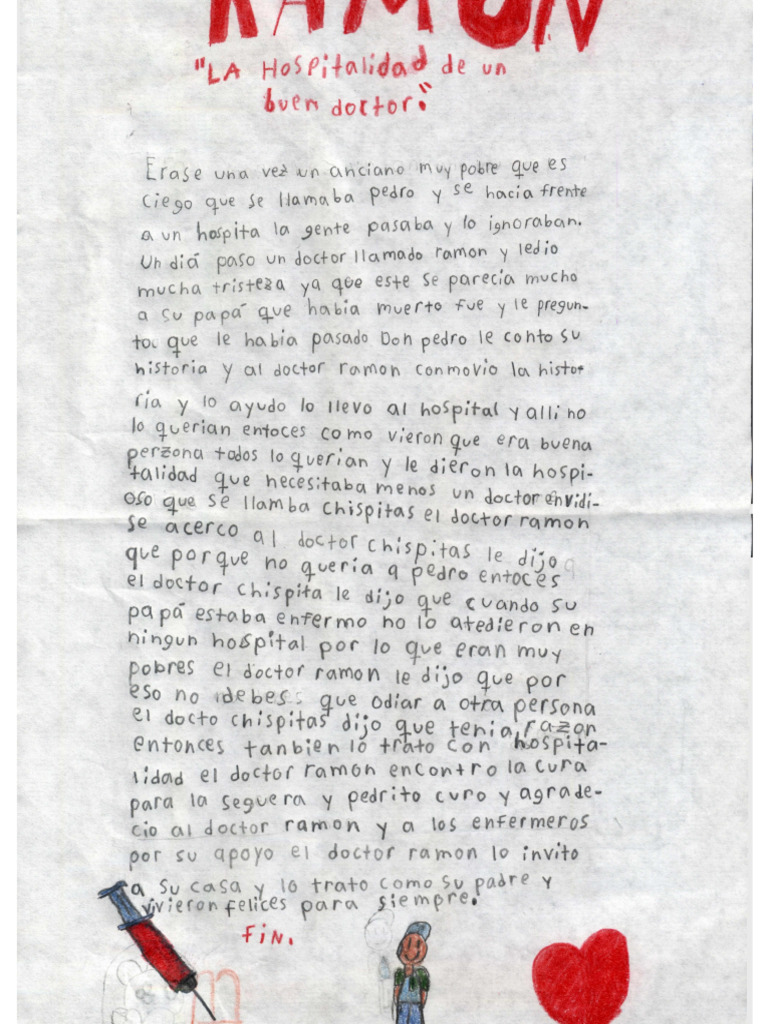 RAMON
"LA HOSpitalidad de un
buen doctor."
Erase una vez un anciano muy pobre que es
Ciego que se llamaba pedro y se hacia frente
a un hospita la gente pasaba y lo ignoraban.
Un diá paso un doctor llamado ramon y ledio
mucha tristeza ya que este se parecia mucho
a su papá que habia muerto fue y le pregun-
to que le habia pasado Don pedro le conto su
historia y al doctor ramon conmovio la histor
ria y lo ayudo lo llevo al hospital y alli no
lo querian entoces como vieron que era buena
perzona todos lo querian y le dieron la hospi-
talidad que necesitaba menos un doctor envidi-
oso que se llamba chispitas el doctor ramon
se acerco al doctor chispitas le dijo
que porque no queria a pedro entoces
el doctor chispita le dijo que cuando su
papá estaba enfermo no lo atedieron en
ningun hospital por lo que eran muy
pobres el doctor ramon le dijo que por
eso no debes que odiar a otra persona
el docto chispitas dijo que tenia razon
entonces tanbien lo trato con hospita-
lidad el doctor ramon encontro la cura
para la seguera y pedrito curo y agrade-
cio al doctor ramon y a los enfermeros
por su apoyo el doctor ramon lo invito
a su casa y lo trato como su padre y
vivieron felices para siempre.
FiN.